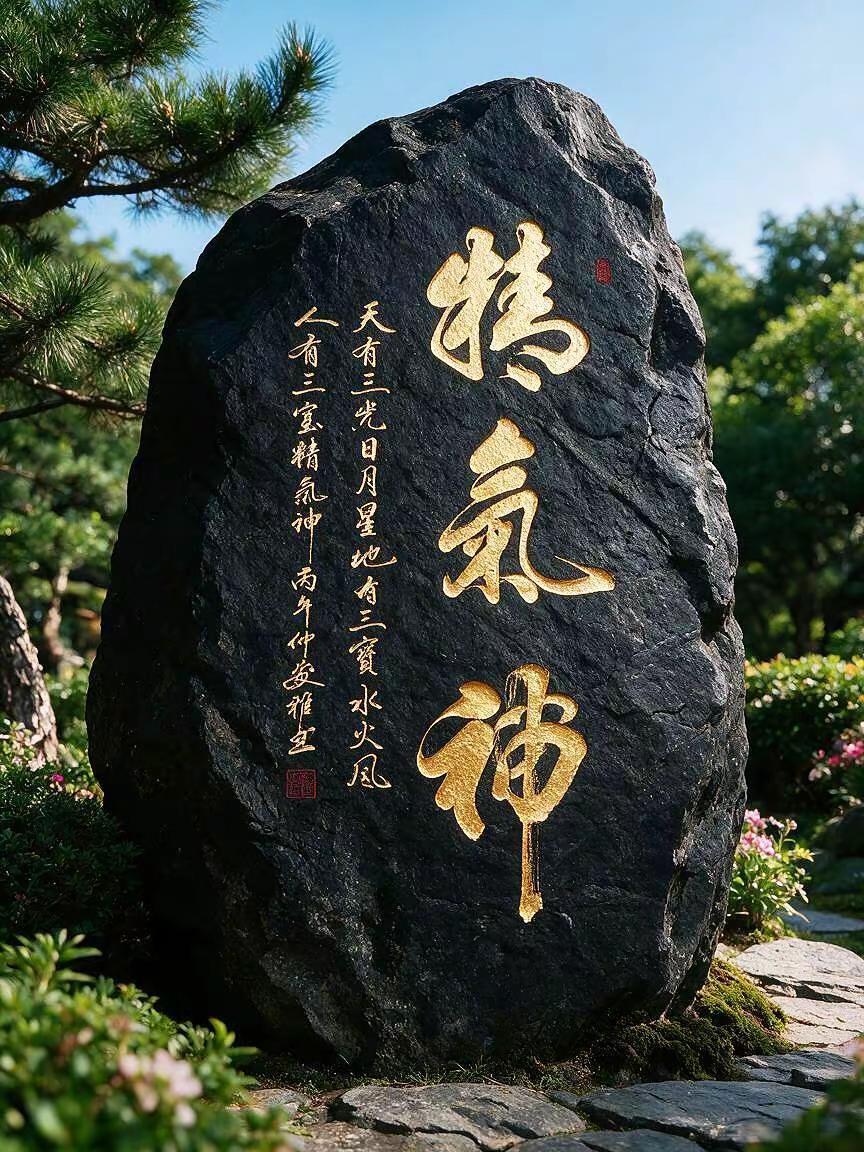 精氣神
天有三光日月星地有三寶水火風
人有三寶精氣神 丙午仲夏雅書